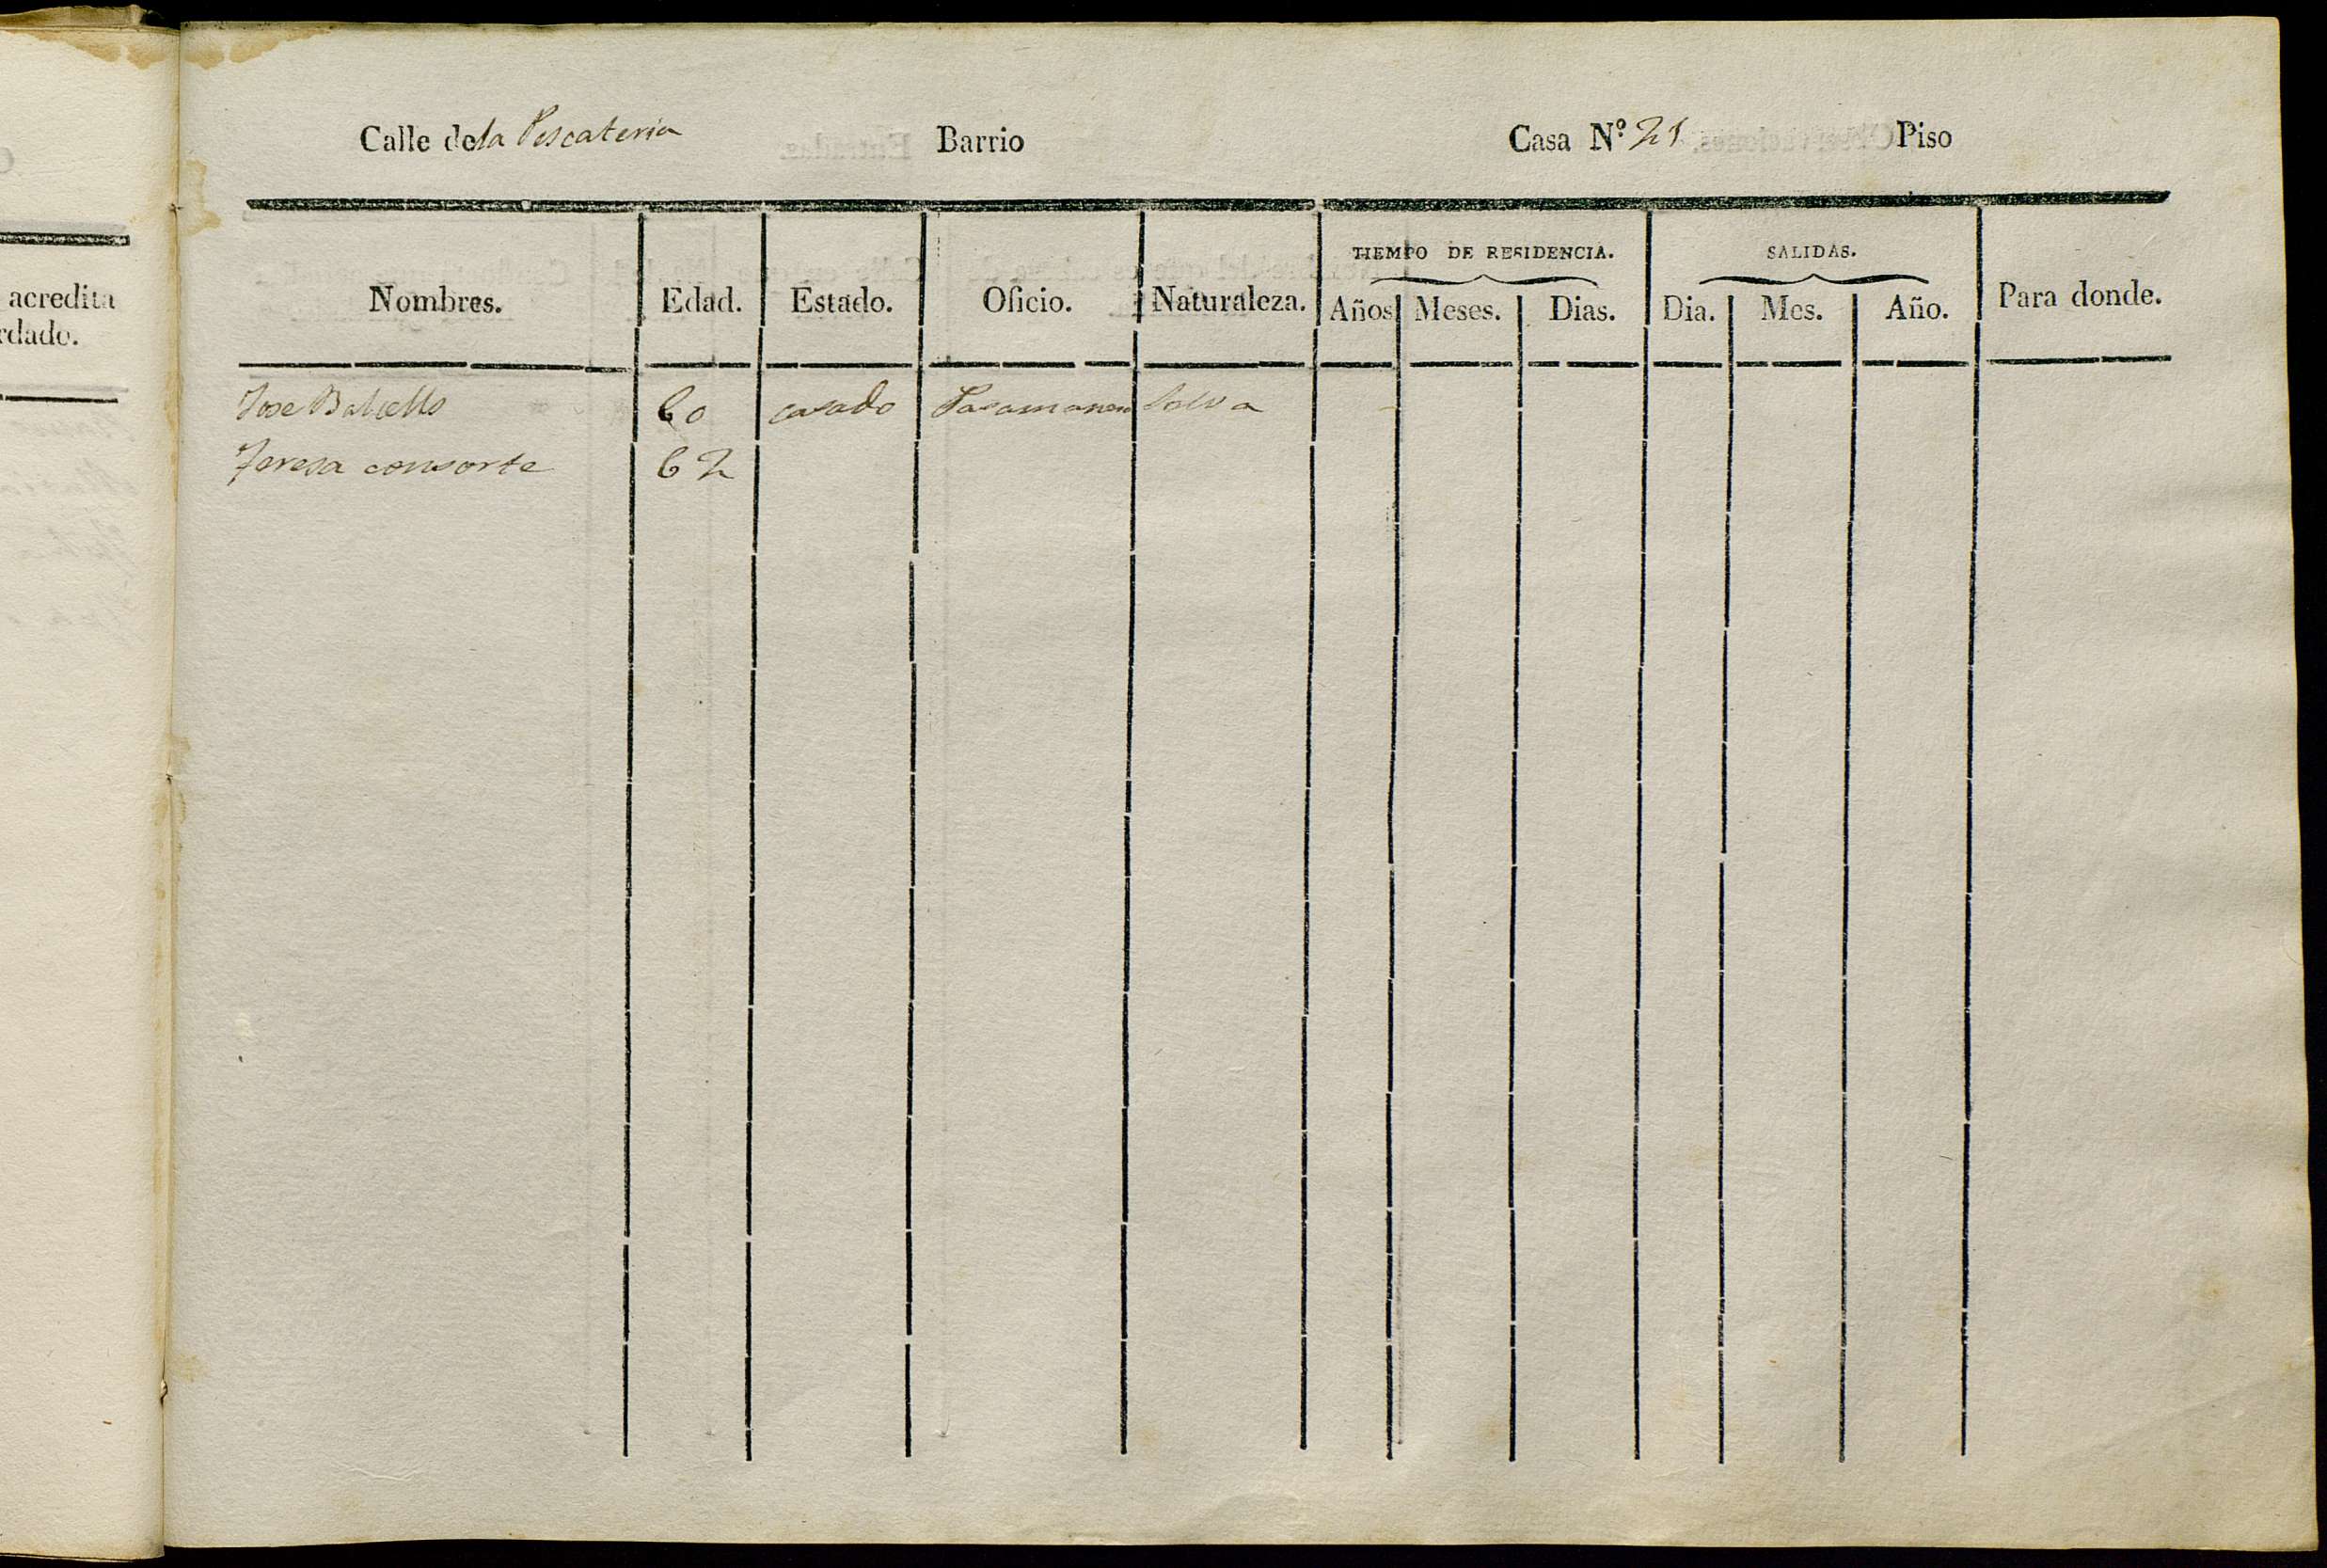 acredita
rdado.
Calle de la Pescateria Barrio Casa N.º 21 Piso
TIEMPO DE RESIDENCIA. SALIDAS.
Nombres. Edad. Estado. Oficio. Naturaleza. Años Meses. Dias. Dia. Mes. Año. Para donde.
Jose 60 casado
Teresa consorte 62